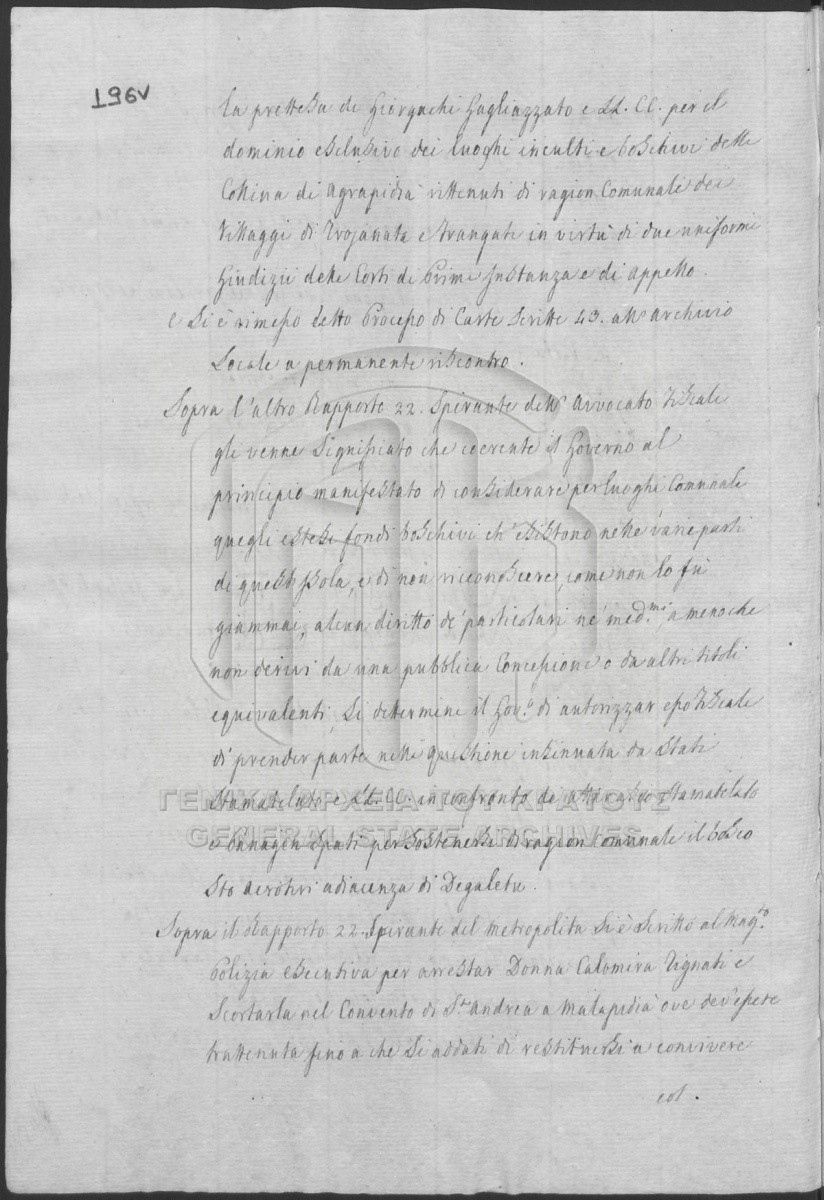 196v
la prettesa di Giorgachi Gagliazzato e LL. CC. per il
dominio esclusivo dei luoghi inculti e boschivi della
Collina di Agrapidià rittenuti di ragion Comunale dei
Villaggi di Trojanata e Frangata in virtù di due uniformi
Giudizii delle Corti di Prima Instanza e di Appello.
e Si è rimesso detto Processo di Carte Scritte 43. all'archivio
Locale a permanente riscontro.
Sopra l'altro Rapporto 22. Spirante dell' Avvocato Fiscale
gli venne Significato che coerente il Governo al
principio manifestato di considerare per luoghi Comunale
quegli estesi fondi boschivi ch' esistono nelle varie parti
di quest' Isola, e di non riconoscere, come non lo fù
giammai, alcun diritto de' particolari ne' med.mi, a meno che
non derivi da una pubblica Concessione o da altri titoli
equivalenti, Si determina il Gov.o di autorizzar esso Fiscale
di prender parte nella questione insinuata da Stati
Stamatelato e LL. CC. in confronto de Stamatelato
e Panagin per sostenersi di ragion Comunale il bosco
Sto acrotiri adiacenza di Degaleto.
Sopra il Rapporto 22. Spirante del Metropolita Si è Scritto al Mag.to
Polizia esecutiva per arrestar Donna Calomira Vignati e
Scortarla nel Convento di S.t Andrea a Milapidià ove dev'essere
trattenuta fino a che Si addati di restituirsi a convivere
col.
ΓΕΝΙΚΑ ΑΡΧΕΙΑ ΤΟΥ ΚΡΑΤΟΥΣ
GENERAL STATE ARCHIVES